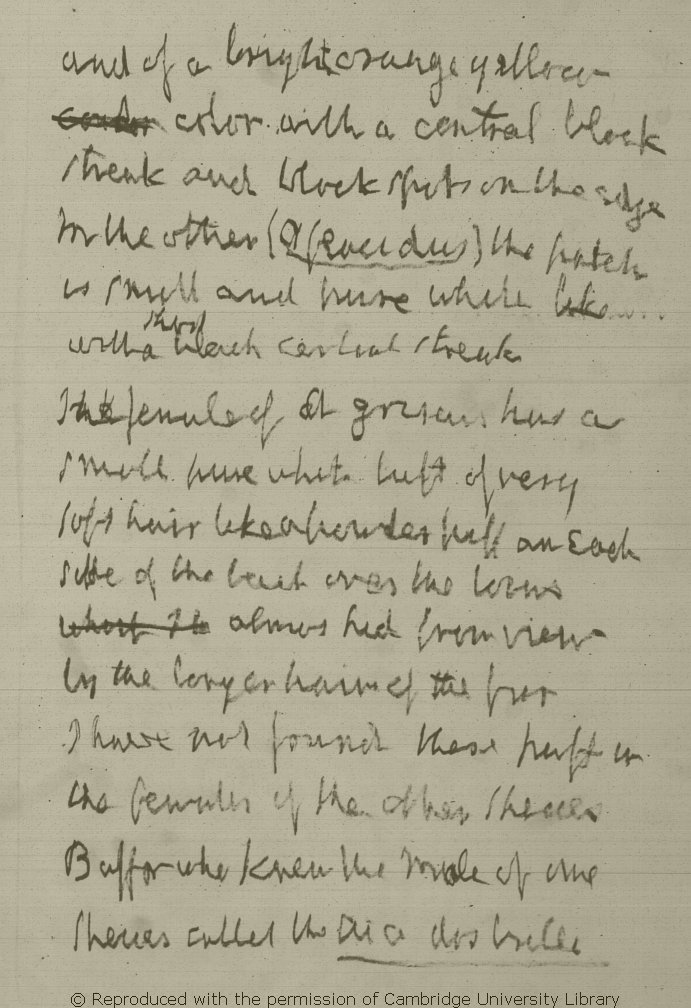 and of a bright orange yellow
color with a central black
streak and black spots on the edge
In the other (        ) the patch
is small and pure white like
with a short black central streak
The female of     griseus has a
small pure white tuft of very
soft hair like a powder puff on Each
side of the back over the loins
almost hid from view
by the longer hairs of the fur
I have not found these puff in
the females of the other species
Buffon who knew the male of one
species called the Ai a dos brulé
© Reproduced with the permission of Cambridge University Library